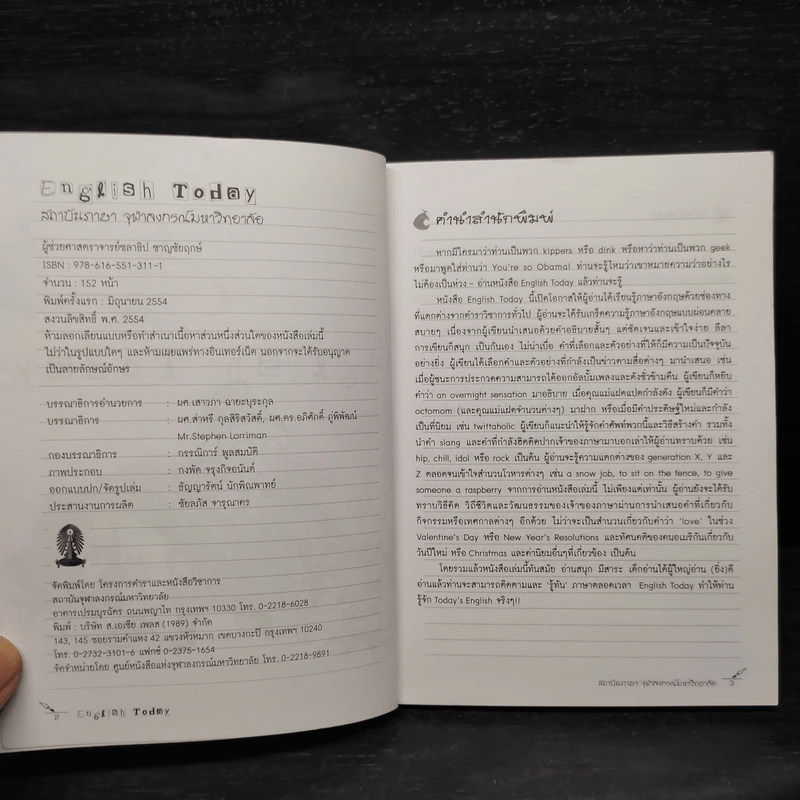 English Today
สถาบันภาษา จุฬาลงกรณ์มหาวิทยาลัย
ผู้ช่วยศาสตราจารย์ชลาธิป ชาญชัยฤกษ์
ISBN : 978-616-551-311-1
จำนวน : 152 หน้า
พิมพ์ครั้งแรก : มิถุนายน 2554
สงวนลิขสิทธิ์ พ.ศ. 2554
ห้ามลอกเลียนแบบหรือทำสำเนาเนื้อหาส่วนหนึ่งส่วนใดของหนังสือเล่มนี้
ไม่ว่าในรูปแบบใดๆ และห้ามเผยแพร่ทางอินเทอร์เน็ต นอกจากจะได้รับอนุญาต
เป็นลายลักษณ์อักษร
บรรณาธิการอำนวยการ : ผศ.เสาวภา ฉายะบุระกุล
บรรณาธิการ : ผศ.ส่าหรี กุลสิริสวัสดิ์, ผศ.ดร.อภิศักดิ์ ภู่พิพัฒน์
Mr.Stephen Lorriman
กองบรรณาธิการ : กรรณิการ์ พูลสมบัติ
ภาพประกอบ : กงพัด จรุงกิจอนันต์
ออกแบบปก/จัดรูปเล่ม : ธัญญารัตน์ นักพิณพาทย์
ประสานงานการผลิต : ชัยลภัส จารุณาคร
จัดพิมพ์โดย โครงการตำราและหนังสือวิชาการ
สถาบันจุฬาลงกรณ์มหาวิทยาลัย
อาคารเปรมบุรฉัตร ถนนพญาไท กรุงเทพฯ 10330 โทร. 0-2218-6028
พิมพ์ : บริษัท ส.เอเชีย เพลส (1989) จำกัด
143, 145 ซอยรามคำแหง 42 แขวงหัวหมาก เขตบางกะปิ กรุงเทพฯ 10240
โทร. 0-2732-3101-6 แฟกซ์ 0-2375-1654
จัดจำหน่ายโดย ศูนย์หนังสือแห่งจุฬาลงกรณ์มหาวิทยาลัย โทร. 0-2218-9891
2 English Today
คำนำสำนักพิมพ์
หากมีใครมาว่าท่านเป็นพวก kippers หรือ dink หรือหาว่าท่านเป็นพวก geek
หรือมาพูดใส่ท่านว่า You're so Obama! ท่านจะรู้ไหมว่าเขาหมายความว่าอย่างไร
ไม่ต้องเป็นห่วง - อ่านหนังสือ English Today แล้วท่านจะรู้
หนังสือ English Today นี้เปิดโอกาสให้ผู้อ่านได้เรียนรู้ภาษาอังกฤษด้วยช่องทาง
ที่แตกต่างจากตำราวิชาการทั่วไป ผู้อ่านจะได้รับเกร็ดความรู้ภาษาอังกฤษแบบผ่อนคลาย
สบายๆ เนื่องจากผู้เขียนนำเสนอด้วยคำอธิบายสั้นๆ แต่ชัดเจนและเข้าใจง่าย ลีลา
การเขียนก็สนุก เป็นกันเอง ไม่น่าเบื่อ คำที่เลือกและตัวอย่างที่ให้ก็มีความเป็นปัจจุบัน
อย่างยิ่ง ผู้เขียนได้เลือกคำและตัวอย่างที่กำลังเป็นข่าวตามสื่อต่างๆ มานำเสนอ เช่น
เมื่อผู้ชนะการประกวดความสามารถได้ออกอัลบั้มเพลงและดังชั่วข้ามคืน ผู้เขียนก็หยิบ
คำว่า an overnight sensation มาอธิบาย เมื่อคุณแม่แฝดแปดกำลังดัง ผู้เขียนก็มีคำว่า
octomom (และคุณแม่แฝดจำนวนต่างๆ) มาฝาก หรือเมื่อมีคำประดิษฐ์ใหม่และกำลัง
เป็นที่นิยม เช่น twittaholic ผู้เขียนก็แนะนำให้รู้จักคำศัพท์พวกนี้และวิธีสร้างคำ รวมทั้ง
นำคำ slang และคำที่กำลังฮิตติดปากเจ้าของภาษามาบอกเล่าให้ผู้อ่านทราบด้วย เช่น
hip, chill, idol หรือ rock เป็นต้น ผู้อ่านจะรู้ความแตกต่างของ generation X, Y และ
Z ตลอดจนเข้าใจสำนวนโวหารต่างๆ เช่น a snow job, to sit on the fence, to give
someone a raspberry จากการอ่านหนังสือเล่มนี้ ไม่เพียงแค่เท่านั้น ผู้อ่านยังจะได้รับ
ทราบวิธีคิด วิถีชีวิตและวัฒนธรรมของเจ้าของภาษาผ่านการนำเสนอคำที่เกี่ยวกับ
กิจกรรมหรือเทศกาลต่างๆ อีกด้วย ไม่ว่าจะเป็นสำนวนเกี่ยวกับคำว่า 'love' ในช่วง
Valentine's Day หรือ New Year's Resolutions และทัศนคติของคนอเมริกันเกี่ยวกับ
วันปีใหม่ หรือ Christmas และค่านิยมอื่นๆที่เกี่ยวข้อง เป็นต้น
โดยรวมแล้วหนังสือเล่มนี้ทันสมัย อ่านสนุก มีสาระ เด็กอ่านได้ผู้ใหญ่อ่าน (ยิ่ง)ดี
อ่านแล้วท่านจะสามารถติดตามและ 'รู้ทัน' ภาษาตลอดเวลา English Today ทำให้ท่าน
รู้จัก Today's English จริงๆ!!
สถาบันภาษา จุฬาลงกรณ์มหาวิทยาลัย 3